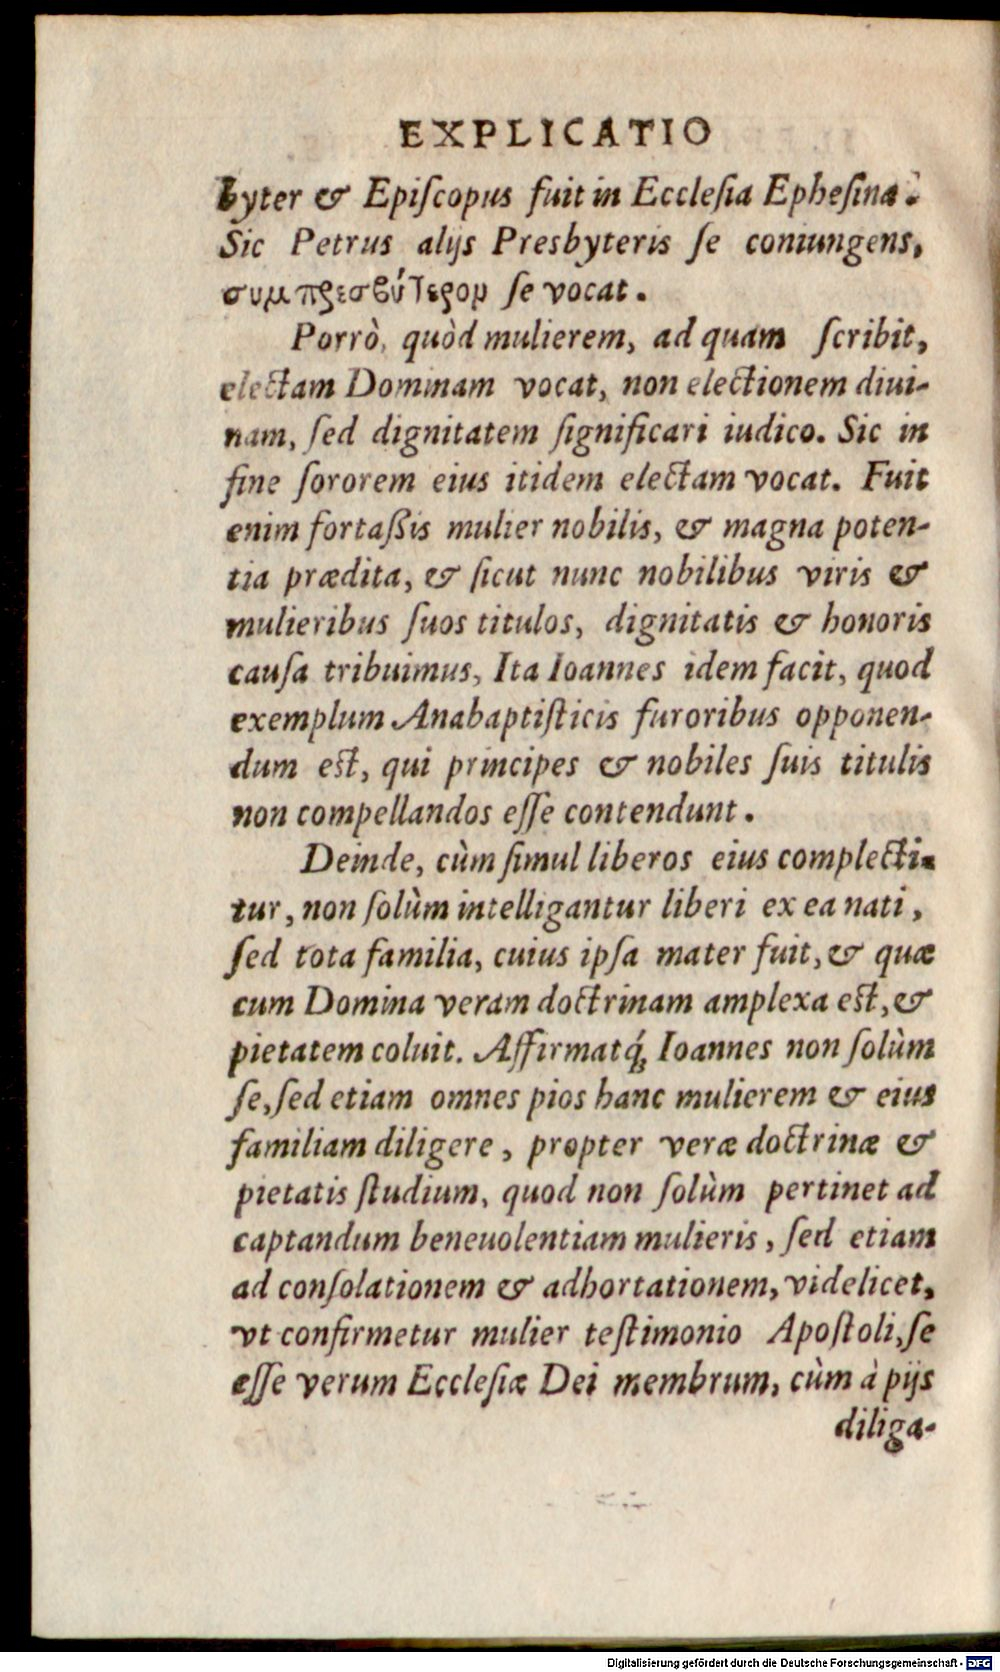 EXPLICATIO
byter & Epiſcopus fuit in Ecclesia Ephesina.
Sic Petrus alijs Presbyteris ſe coniungens,
συμπρεσβύτερον ſe vocat.
Porrò, quòd mulierem, ad quam ſcribit,
electam Dominam vocat, non electionem diui-
nam, ſed dignitatem ſignificari iudico. Sic in
fine ſororem eius itidem electam vocat. Fuit
enim fortaßis mulier nobilis, & magna poten-
tia prædita, & ſicut nunc nobilibus viris &
mulieribus ſuos titulos, dignitatis & honoris
cauſa tribuimus, Ita Ioannes idem facit, quod
exemplum Anabaptiſticis furoribus opponen-
dum est, qui principes & nobiles ſuis titulis
non compellandos eſſe contendunt.
Deinde, cùm ſimul liberos eius complecti-
tur, non ſolùm intelligantur liberi ex ea nati,
ſed tota familia, cuius ipſa mater fuit, & quæ
cum Domina veram doctrinam amplexa est, &
pietatem coluit. Affirmatq́; Ioannes non ſolùm
ſe, ſed etiam omnes pios hanc mulierem & eius
familiam diligere, propter veræ doctrinæ &
pietatis ſtudium, quod non ſolùm pertinet ad
captandum beneuolentiam mulieris, ſed etiam
ad conſolationem & adhortationem, videlicet,
vt confirmetur mulier teſtimonio Apoſtoli, ſe
eſſe verum Eccleſiæ Dei membrum, cùm à pijs
diliga-
Digitalisierung gefördert durch die Deutsche Forschungsgemeinschaft - DFG